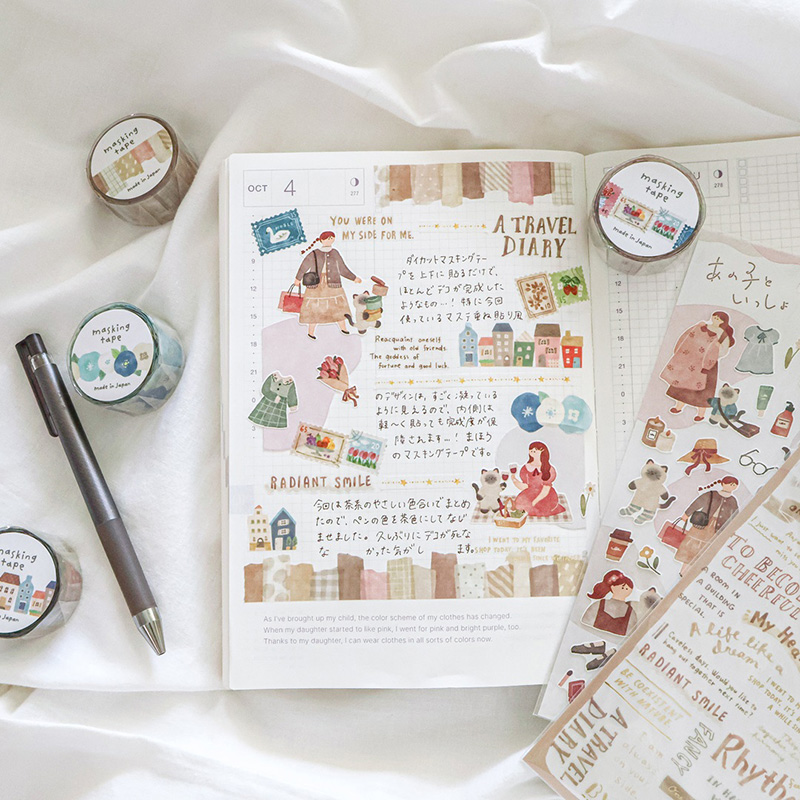 masking
tape
made in Japan
masking
tape
made in Japan
masking
tape
masking
tape
made in Japan
OCT 4
277
278
YOU WERE ON
MY SIDE FOR ME.
A TRAVEL
DIARY
ダイカットマスキングテー
プを上下に貼るだけで、
ほとんどデコが完成した
ようなもの…！特に今回
使っているマステ重ね貼り風
Reacquaint oneself
with old friends.
The goddess of
fortune and good luck.
のデザインは、すごく凝っている
ように見えるので、内側は
軽〜く貼っても完成度が保
障されます…！まほう
のマスキングテープです。
RADIANT SMILE
今回は茶系のやさしい色合いでまとめ
たので、ペンの色を茶色にしてなじ
ませました。久しぶりにデコが死な
なかった気がします。
I WENT TO MY FAVORITE
SHOP TODAY, IT'S BEEN
As I've brought up my child, the color scheme of my clothes has changed.
When my daughter started to like pink, I went for pink and bright purple, too.
Thanks to my daughter, I can wear clothes in all sorts of colors now.
あの子と
いっしょ
TO BECOME
CHEERFUL
A ROOM IN
A BUILDING
THAT IS
SPECIAL.
My Hea
A life like a
dream
Careless days. Would you like to
hang out together next time?
RADIANT SMILE
BE CONSISTENT
WITH NATURE
A TRAVEL
DIARY
FANCY
Rhythm